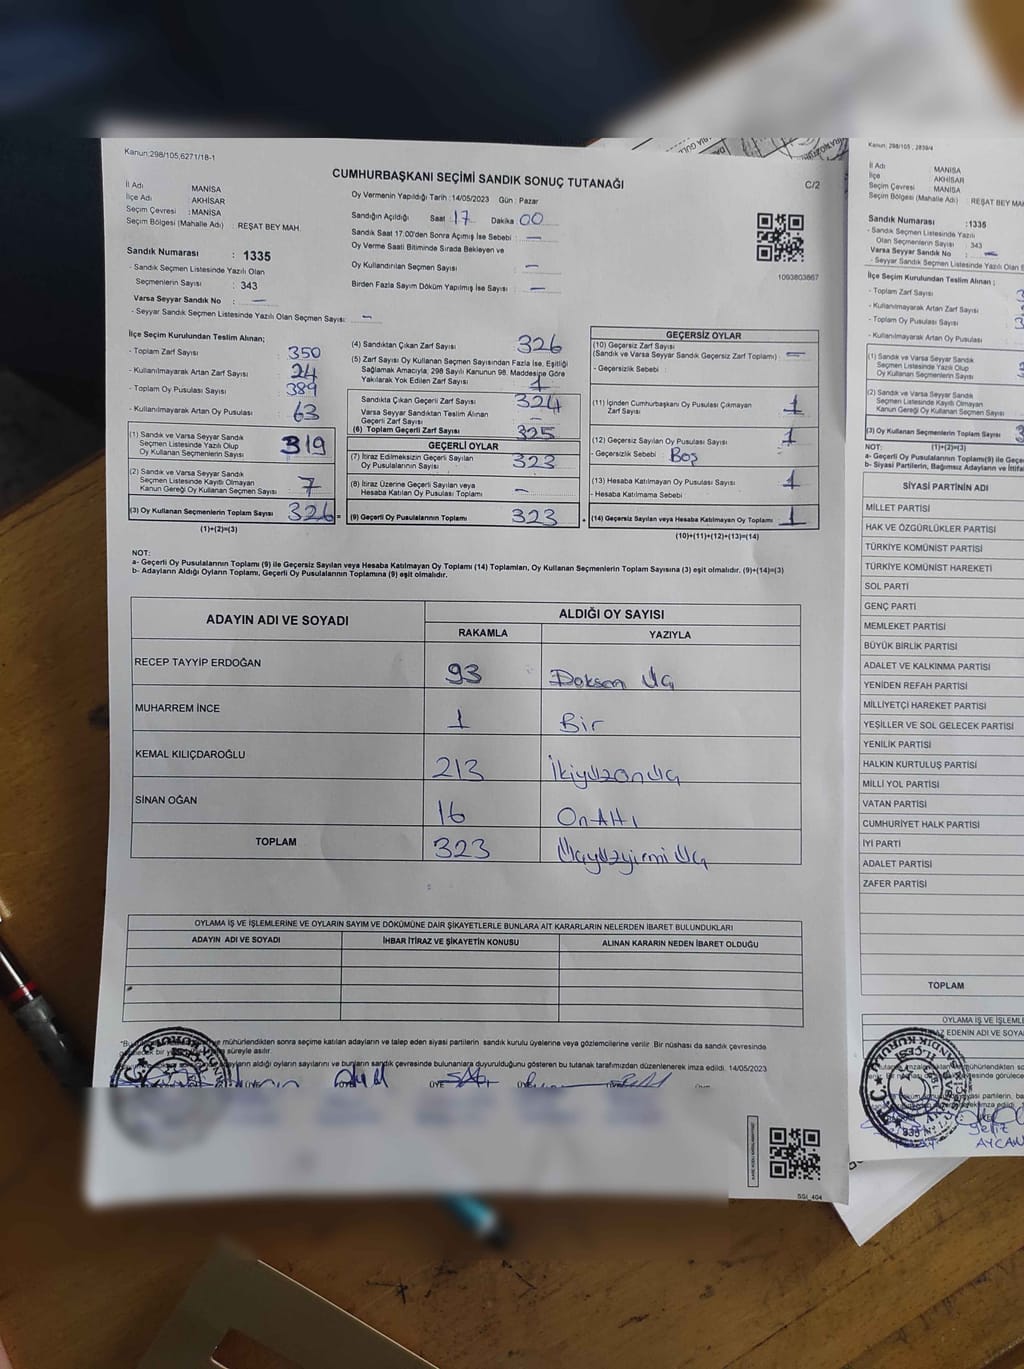 Kanun:298/105,6271/18-1
CUMHURBAŞKANI SEÇİMİ SANDIK SONUÇ TUTANAĞI
C/2
İl Adı MANİSA
İlçe Adı : AKHİSAR
Seçim Çevresi : MANİSA
Seçim Bölgesi (Mahalle Adı) : REŞAT BEY MAH.
Oy Vermenin Yapıldığı Tarih : 14/05/2023 Gün : Pazar
Sandığın Açıldığı Saat 17 Dakika 00
Sandık Saat 17.00'den Sonra Açımış İse Sebebi : —
Oy Verme Saati Bitiminde Sırada Bekleyen ve
Oy Kullandırılan Seçmen Sayısı : —
Birden Fazla Sayım Döküm Yapılmış İse Sayısı : —
1093803867
Sandık Numarası : 1335
- Sandık Seçmen Listesinde Yazılı Olan
Seçmenlerin Sayısı : 343
Varsa Seyyar Sandık No : —
- Seyyar Sandık Seçmen Listesinde Yazılı Olan Seçmen Sayısı: —
İlçe Seçim Kurulundan Teslim Alınan;
- Toplam Zarf Sayısı : 350
- Kullanılmayarak Artan Zarf Sayısı : 24
- Toplam Oy Pusulası Sayısı : 389
- Kullanılmayarak Artan Oy Pusulası : 63
(1) Sandık ve Varsa Seyyar Sandık
Seçmen Listesinde Yazılı Olup
Oy Kullanan Seçmenlerin Sayısı 319
(2) Sandık ve Varsa Seyyar Sandık
Seçmen Listesinde Kayıtlı Olmayan
Kanun Gereği Oy Kullanan Seçmen Sayısı 7
(3) Oy Kullanan Seçmenlerin Toplam Sayısı 326 =
(1)+(2)=(3)
(4) Sandıktan Çıkan Zarf Sayısı 326
(5) Zarf Sayısı Oy Kullanan Seçmen Sayısından Fazla İse, Eşitliği
Sağlamak Amacıyla, 298 Sayılı Kanunun 98. Maddesine Göre
Yakılarak Yok Edilen Zarf Sayısı 1
Sandıkta Çıkan Geçerli Zarf Sayısı 324
Varsa Seyyar Sandıktan Teslim Alınan
Geçerli Zarf Sayısı —
(6) Toplam Geçerli Zarf Sayısı 325
GEÇERLİ OYLAR
(7) İtiraz Edilmeksizin Geçerli Sayılan
Oy Pusulasının Sayısı 323
(8) İtiraz Üzerine Geçerli Sayılan veya
Hesaba Katılan Oy Pusulası Toplamı —
(9) Geçerli Oy Pusulalarının Toplamı 323 +
GEÇERSİZ OYLAR
(10) Geçersiz Zarf Sayısı
(Sandık ve Varsa Seyyar Sandık Geçersiz Zarf Toplamı) : —
- Geçersizlik Sebebi :
(11) İçinden Cumhurbaşkanı Oy Pusulası Çıkmayan
Zarf Sayısı : 1
(12) Geçersiz Sayılan Oy Pusulası Sayısı : 1
- Geçersizlik Sebebi : Boş
(13) Hesaba Katılmayan Oy Pusulası Sayısı : 1
- Hesaba Katılmama Sebebi :
(14) Geçersiz Sayılan veya Hesaba Katılmayan Oy Toplamı : 1
(10)+(11)+(12)+(13)=(14)
NOT:
a- Geçerli Oy Pusulalarının Toplamı (9) ile Geçersiz Sayılan veya Hesaba Katılmayan Oy Toplamı (14) Toplamları, Oy Kullanan Seçmenlerin Toplam Sayısına (3) eşit olmalıdır. (9)+(14)=(3)
b- Adayların Aldığı Oyların Toplamı, Geçerli Oy Pusulalarının Toplamına (9) eşit olmalıdır.
ADAYIN ADI VE SOYADI ALDIĞI OY SAYISI
RAKAMLA YAZIYLA
RECEP TAYYİP ERDOĞAN 93 Doksan Üç
MUHARREM İNCE 1 Bir
KEMAL KILIÇDAROĞLU 213 İkiyüzonüç
SİNAN OĞAN 16 On Altı
TOPLAM 323 Üçyüzyirmi Üç
OYLAMA İŞ VE İŞLEMLERİNE VE OYLARIN SAYIM VE DÖKÜMÜNE DAİR ŞİKAYETLERLE BUNLARA AİT KARARLARIN NELERDEN İBARET BULUNDUKLARI
ADAYIN ADI VE SOYADI İHBAR İTİRAZ VE ŞİKAYETİN KONUSU ALINAN KARARIN NEDEN İBARET OLDUĞU
mühürlendikten sonra seçime katılan adayların ve talep eden siyasi partilerin sandık kurulu üyelerine veya gözlemcilerine verilir. Bir nüshası da sandık çevresinde
süreyle asılır.
aldığı oyların sayılarını ve bunların sandık çevresinde bulunanlara duyurulduğunu gösteren bu tutanak tarafımızdan düzenlenerek imza edildi. 14/05/2023
SGI_404
Kanun: 298/105 , 2839/4
İl Adı : MANİSA
İlçe : AKHİSAR
Seçim Çevresi : MANİSA
Seçim Bölgesi (Mahalle Adı) : REŞAT BEY MAH
Sandık Numarası :1335
- Sandık Seçmen Listesinde Yazılı
Olan Seçmenlerin Sayısı : 343
Varsa Seyyar Sandık No : —
- Seyyar Sandık Seçmen Listesinde Yazılı Olan
İlçe Seçim Kurulundan Teslim Alınan ;
- Toplam Zarf Sayısı
- Kullanılmayarak Artan Zarf Sayısı
- Toplam Oy Pusulası Sayısı
- Kullanılmayarak Artan Oy Pusulası
(1) Sandık ve Varsa Seyyar Sandık
Seçmen Listesinde Yazılı Olup
Oy Kullanan Seçmenlerin Sayısı
(2) Sandık ve Varsa Seyyar Sandık
Seçmen Listesinde Kayıtlı Olmayan
Kanun Gereği Oy Kullanan Seçmen Sayısı
(3) Oy Kullanan Seçmenlerin Toplam Sayısı
NOT: (1)+(2)=(3)
a- Geçerli Oy Pusulalarının Toplamı(9) ile Geçe
b- Siyasi Partilerin, Bağımsız Adayların ve İttifa
SİYASİ PARTİNİN ADI
MİLLET PARTİSİ
HAK VE ÖZGÜRLÜKLER PARTİSİ
TÜRKİYE KOMÜNİST PARTİSİ
TÜRKİYE KOMÜNİST HAREKETİ
SOL PARTİ
GENÇ PARTİ
MEMLEKET PARTİSİ
BÜYÜK BİRLİK PARTİSİ
ADALET VE KALKINMA PARTİSİ
YENİDEN REFAH PARTİSİ
MİLLİYETÇİ HAREKET PARTİSİ
YEŞİLLER VE SOL GELECEK PARTİSİ
YENİLİK PARTİSİ
HALKIN KURTULUŞ PARTİSİ
MİLLİ YOL PARTİSİ
VATAN PARTİSİ
CUMHURİYET HALK PARTİSİ
İYİ PARTİ
ADALET PARTİSİ
ZAFER PARTİSİ
TOPLAM
OYLAMA İŞ VE İŞLEMLE
EDENİN ADI VE SOYA